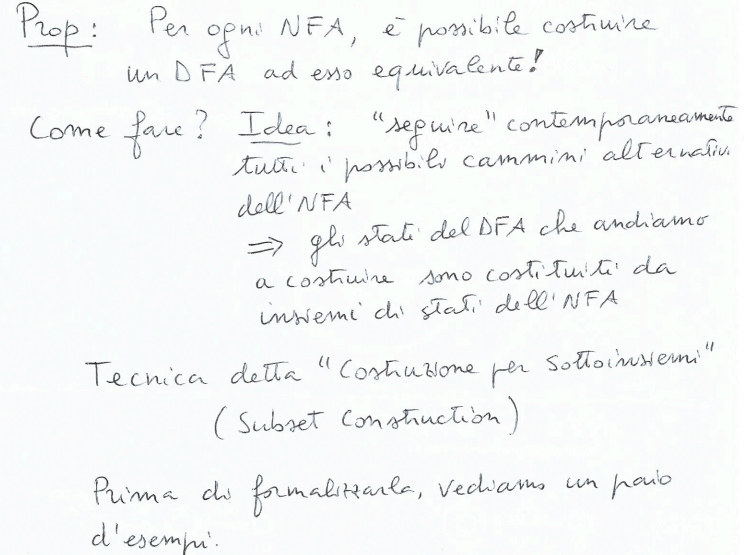 Prop: Per ogni NFA, è possibile costruire
un DFA ad esso equivalente!
Come fare? Idea: "seguire" contemporaneamente
tutti i possibili cammini alternativi
dell'NFA
⇒ gli stati del DFA che andiamo
a costruire sono costituiti da
insiemi di stati dell'NFA
Tecnica detta "Costruzione per Sottoinsiemi"
(Subset Construction)
Prima di formalizzarla, vediamo un paio
d'esempi.